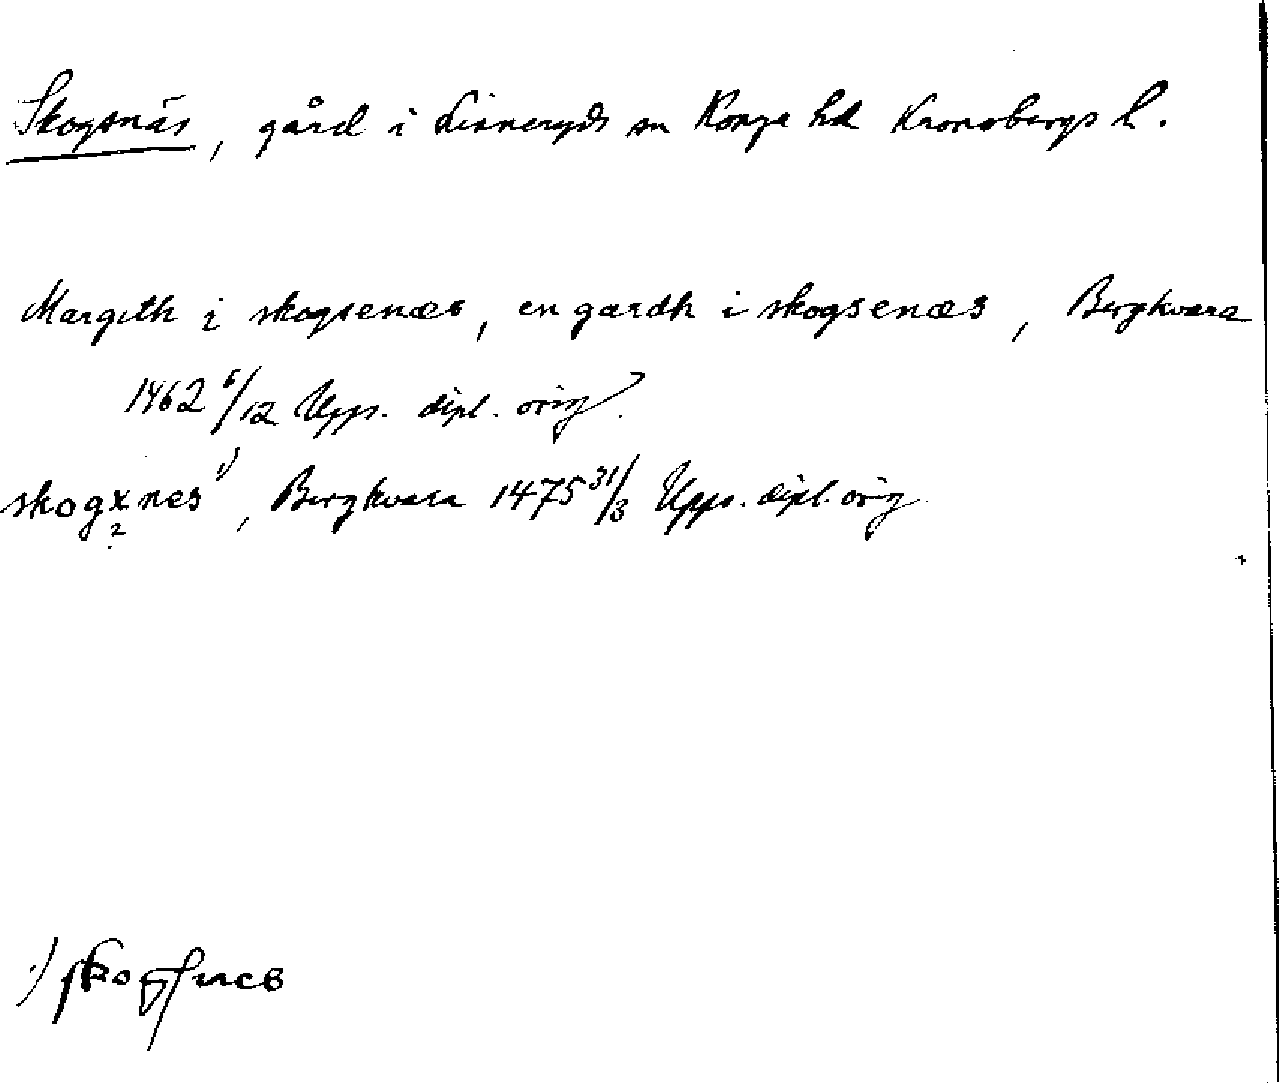 Skogsnäs, gård i Linneryds sn Konga hd Kronobergs l.
Margith i skogsenæs, en gardh i skogsenæs, Bergkvara
1462 6/12 Upps. dipl. orig.
skogxnes 1), Bergkvara 1475 31/3 Upps. dipl. orig
?
1) skogſnes